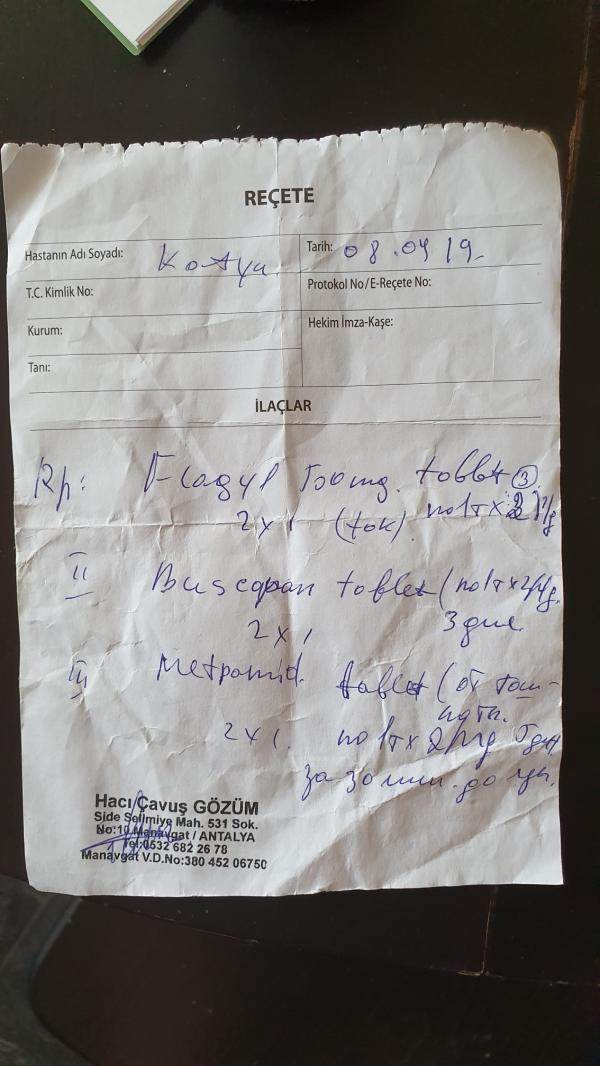 REÇETE
Hastanın Adı Soyadı: Katya
Tarih: 08.04 19
T.C. Kimlik No:
Protokol No/E-Reçete No:
Kurum:
Hekim İmza-Kaşe:
Tanı:
İLAÇLAR
Rp: Flagyl 500mg. tablet 3
2x1 (tok) по 1т x 2
II Buscopan tablet (по 1т x 2
2x1 3 дня
III Metpamid. tablet (от тош-
ноты.
2x1. по 1т x 2
за 30 мин. до
Hacı Çavuş GÖZÜM
Side Selimiye Mah. 531 Sok.
No:10 Manavgat / ANTALYA
Tel:0532 682 26 78
Manavgat V.D.No:380 452 06750